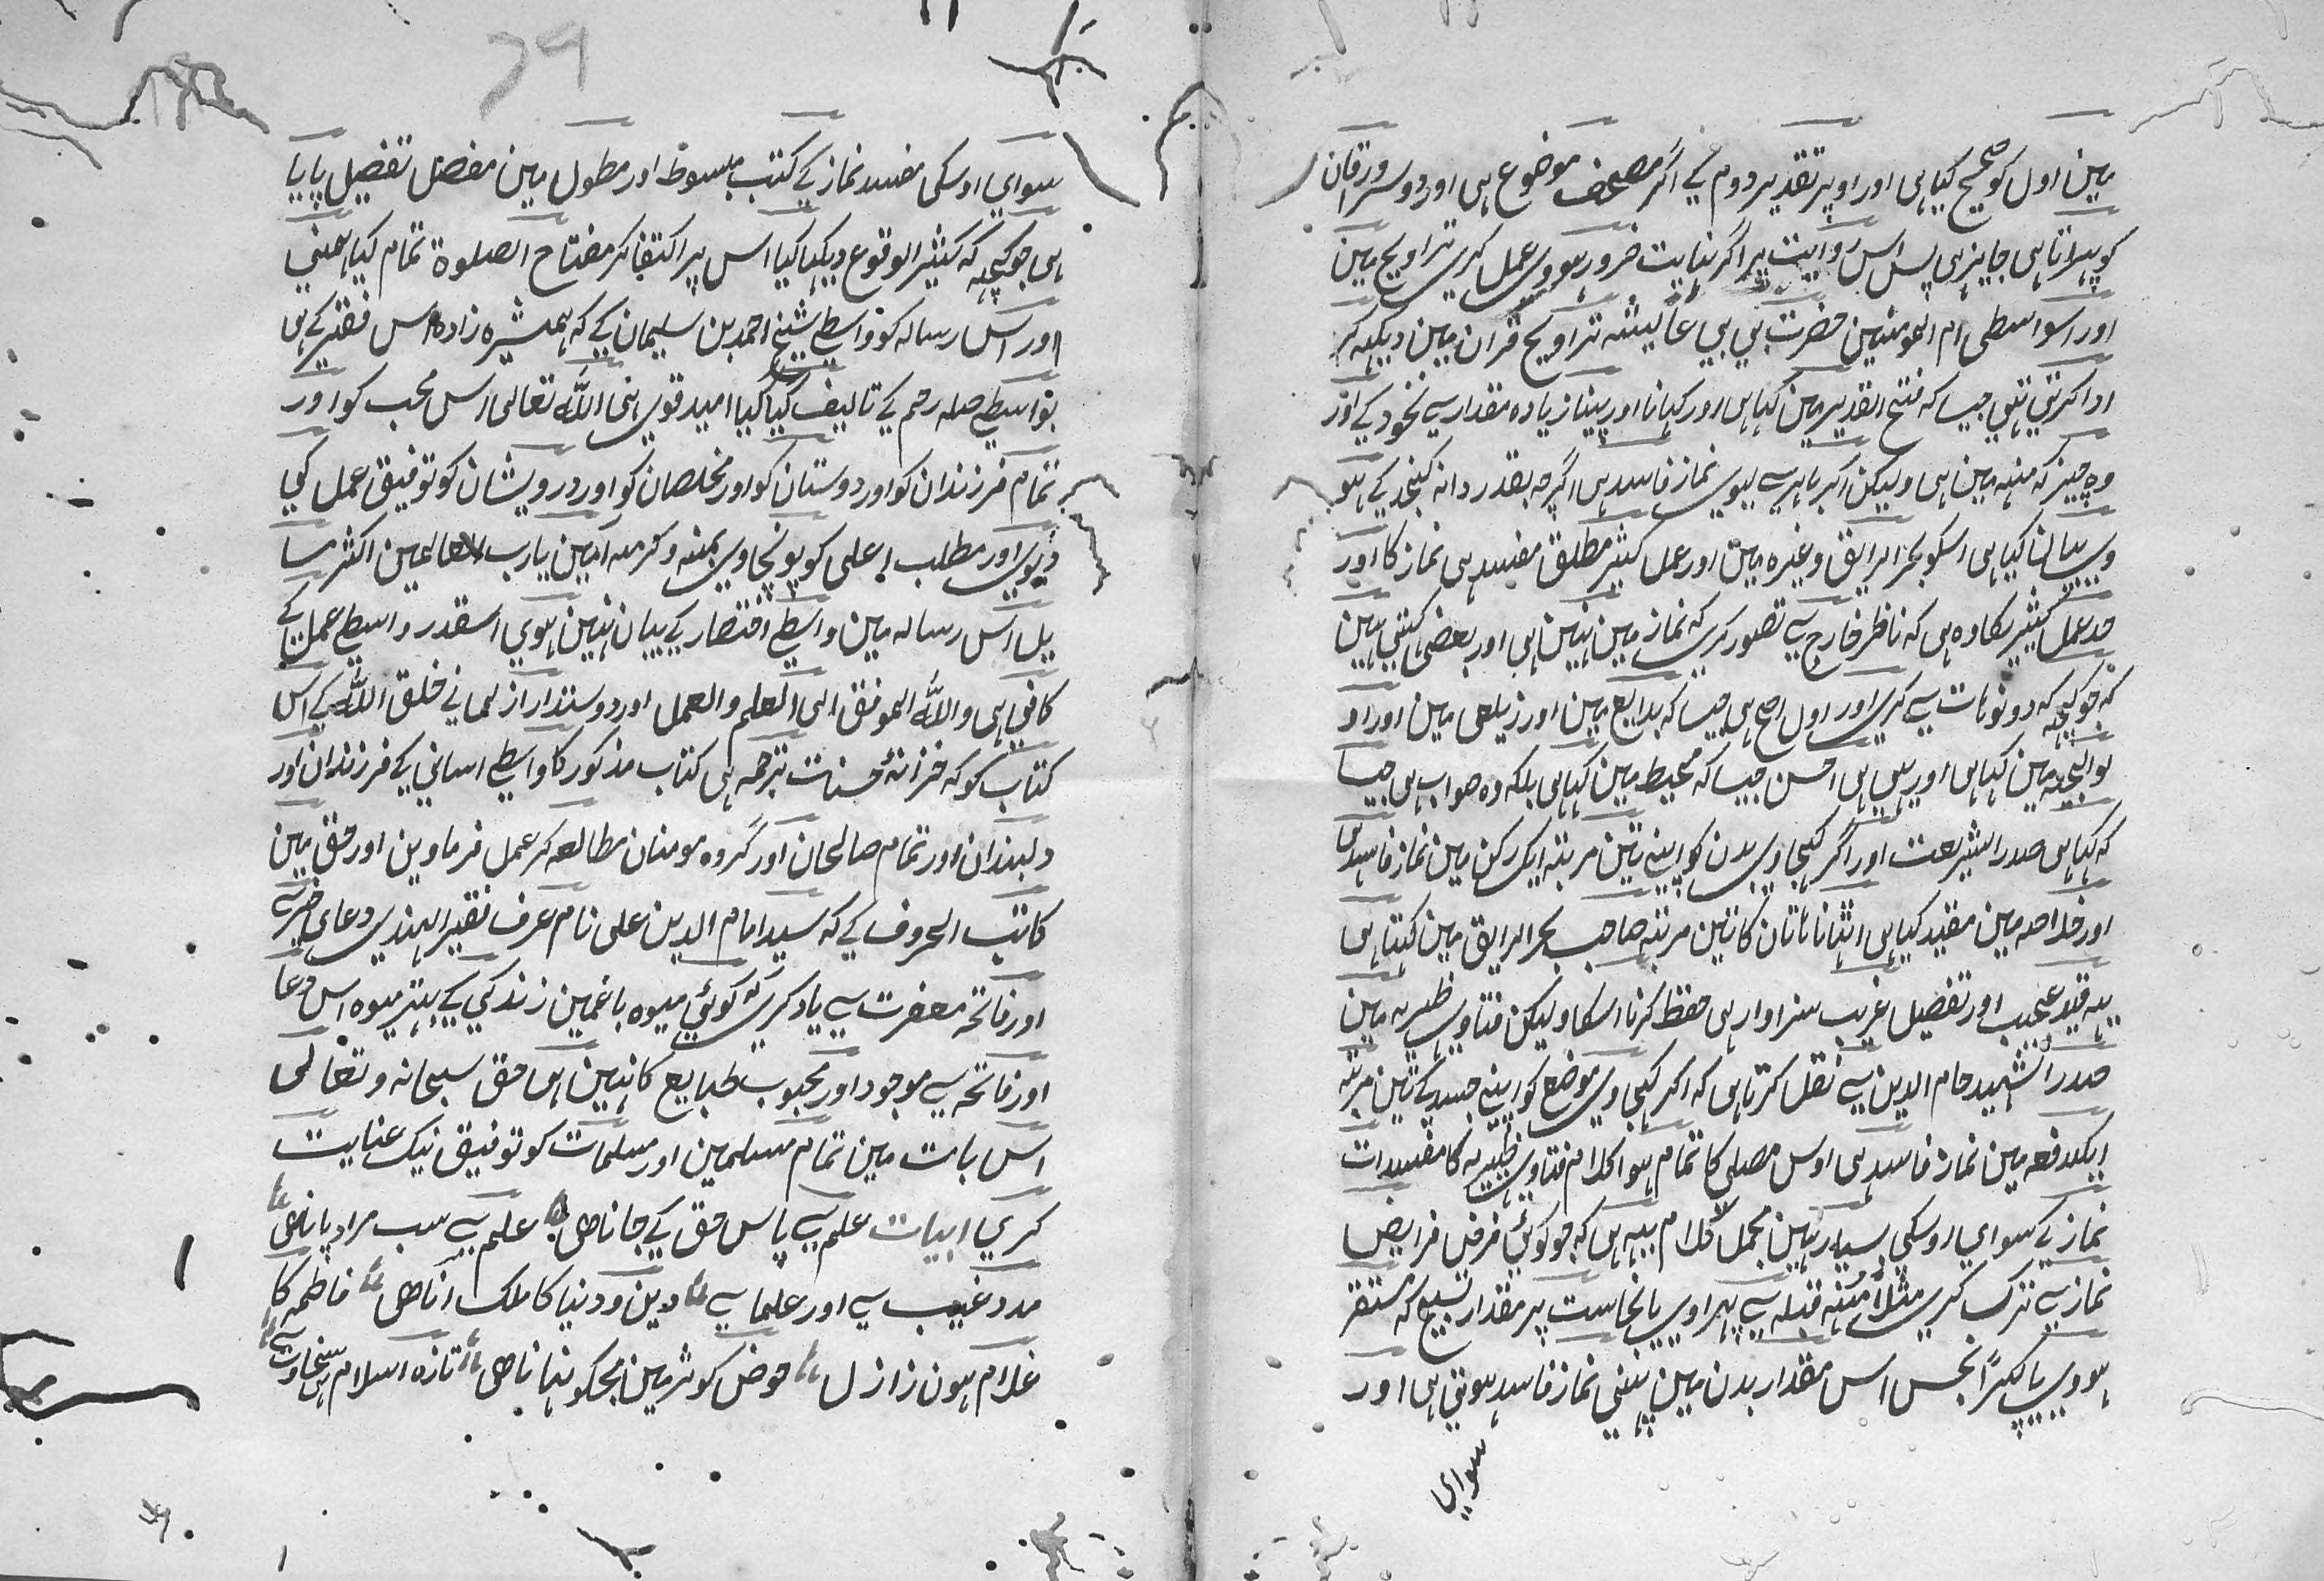 مین اول کو صحیح کیا ہی اور اوپر تقدیر دوم کے اگر مصحف موضوع ہی اور دوسرا ورقان
کو پہلاتا ہی جایز ہی پس اس روایت پر اگر نہایت ضرور ہووی عمل کری تراویح مین
اور اسواسطی ام المومنین حضرت بی بی عایشہ تراویح قران مین دیکہہ کر
ادا کرتی تہی جیسا کہ فتح القدیر مین کہا ہی اور کہانا اور پینا زیادہ مقدار سے نخود کے اور
وہ چیز کہ منہہ مین ہی ولیکن اگر باہر سے لیوی نماز فاسد ہی اگرچہ بقدر دانہ کنجد کے ہو
وی بیان کیا ہی اسکو بحر الرایق وغیرہ مین اور عمل کثیر مطلق مفسد ہی نماز کا اور
حد عمل کثیر کا وہ ہی کہ ناظر خارج سے تصور کری کہ نماز مین نہین ہی اور بعضی کہتی ہین
کہ جو کچہہ کہ دونو ہات سے کری اور اول اصح ہی جیسا کہ بدایع مین اور زیلعی مین اور او
لوالجیہ مین کہا ہی اور یہی ہی احسن جیسا کہ محیط مین کہا ہی بلکہ وہ صواب ہی جیسا
کہ کہا ہی صدر الشریعت اور اگر کہجاوی بدن کو اپنے تین مرتبہ ایک رکن مین نماز فاسد ہی
اور خلاصہ مین مقید کیا ہی اٹہانا ہاتان کا تین مرتبہ صاحب بحر الرایق مین کہتا ہی
یہہ قید عجیب اور تفصیل غریب سزاوار ہی حفظ کرنا اسکا ولیکن فتاوی ظہیریہ مین
صدر الشہید حسام الدین سے نقل کرتا ہی کہ اگر کہجاوی موضع کو اپنے جسد کے تین مرتبہ
ایکدفعہ مین نماز فاسد ہی اوس مصلی کا تمام ہوا کلام فتاوی ظہیریہ کا مفسدات
نماز کے سوای اوسکی بسیار ہین مجمل کلام یہہ ہی کہ جو کوئی فرض فرایض
نماز سے ترک کری مثلاً مُنہہ قبلہ سے پہراوی یا نجاست پر مقدار تسبیح کہ مستقر
ہووی یا کپڑا نجس اس مقدار بدن مین پہنی نماز فاسد ہوتی ہی اور
سوای
79
سوای اوسکی مفسد نماز کے کتب مبسوط اور مطول مین مفصل تفصیل پایا
ہی جو کچہہ کہ کثیر الوقوع دیکہا کیا اس پر اکتفا کر مفتاح الصلوۃ تمام کیا ہمنی
اور اس رسالہ کو واسطے شیخ احمد بن سلیمان کے کہ ہمشیرہ زادہ اس فقیر کے ہی
بواسطے صلہ رحم کے تالیف کیا گیا امید قوی ہی اللّٰہ تعالی اس محب کو اور
تمام فرزندان کو اور دوستان کو اور مخلصان کو اور درویشان کو توفیق عمل کی
دیوی اور مطلب اعلی کو پونچاوی بمنہ وکرمہ آمین یا رب العالمین اکثر مسا
یل اس رسالہ مین واسطے اختصار کے بیان نہین ہوی اسقدر واسطے عمل کے
کافی ہی واللّٰہ الموفق الی العلم والعمل اور دوستدار از لہانے خلق اللّٰہ کے اس
کتاب کو کہ خزانۂ حسنات ترجمہ ہی کتاب مذکور کا واسطے اسانی کے فرزندان اور
دلبندان اور تمام صالحان اور گروہ مومنان مطالعہ کر عمل فرماوین اور حق مین
کاتب الحروف کے کہ سید امام الدین علی نام عرف فقیر الہندی دعای خیر سے
اور فاتحہ مغفرت سے یاد کرے کہ کوئی میوہ باغمین زندگی کے بہتر میوہ اس دعا
اور فاتحہ سے موجود اور محبوب طبایع کا نہین ہی حق سبحانہ وتعالی
اس بات مین تمام مسلمین اور مسلمات کو توفیق نیک عنایت
کری ابیات علم سے پاس حق کے جانا ھی علم سے سب مراد پانا ھی
مدد غیب سے اور علما سے دین و دنیا کا ملک آنا ھی فاطمہ کا
غلام ہون ز ازل حوض کوثر مین مجکو نہانا ھی تازہ اسلام ہی سخاوت سے